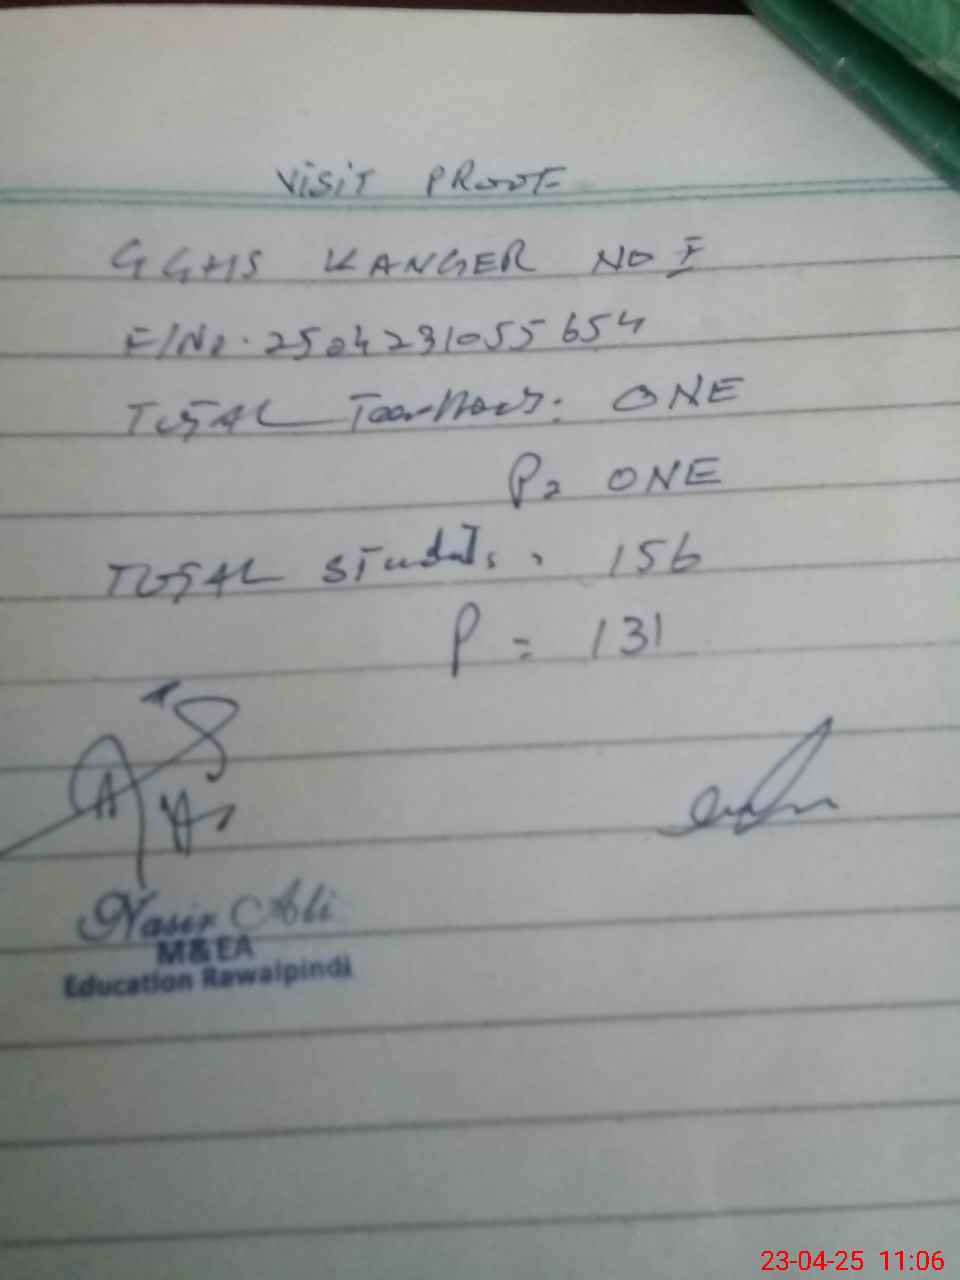 VISIT PROOF
GGHS KANGER NO I
F/No. 2504231055654
TOTAL Teachers: ONE
P= ONE
TOTAL Students, 156
P = 131
Nasir Ali
M&EA
Education Rawalpindi
23-04-25 11:06